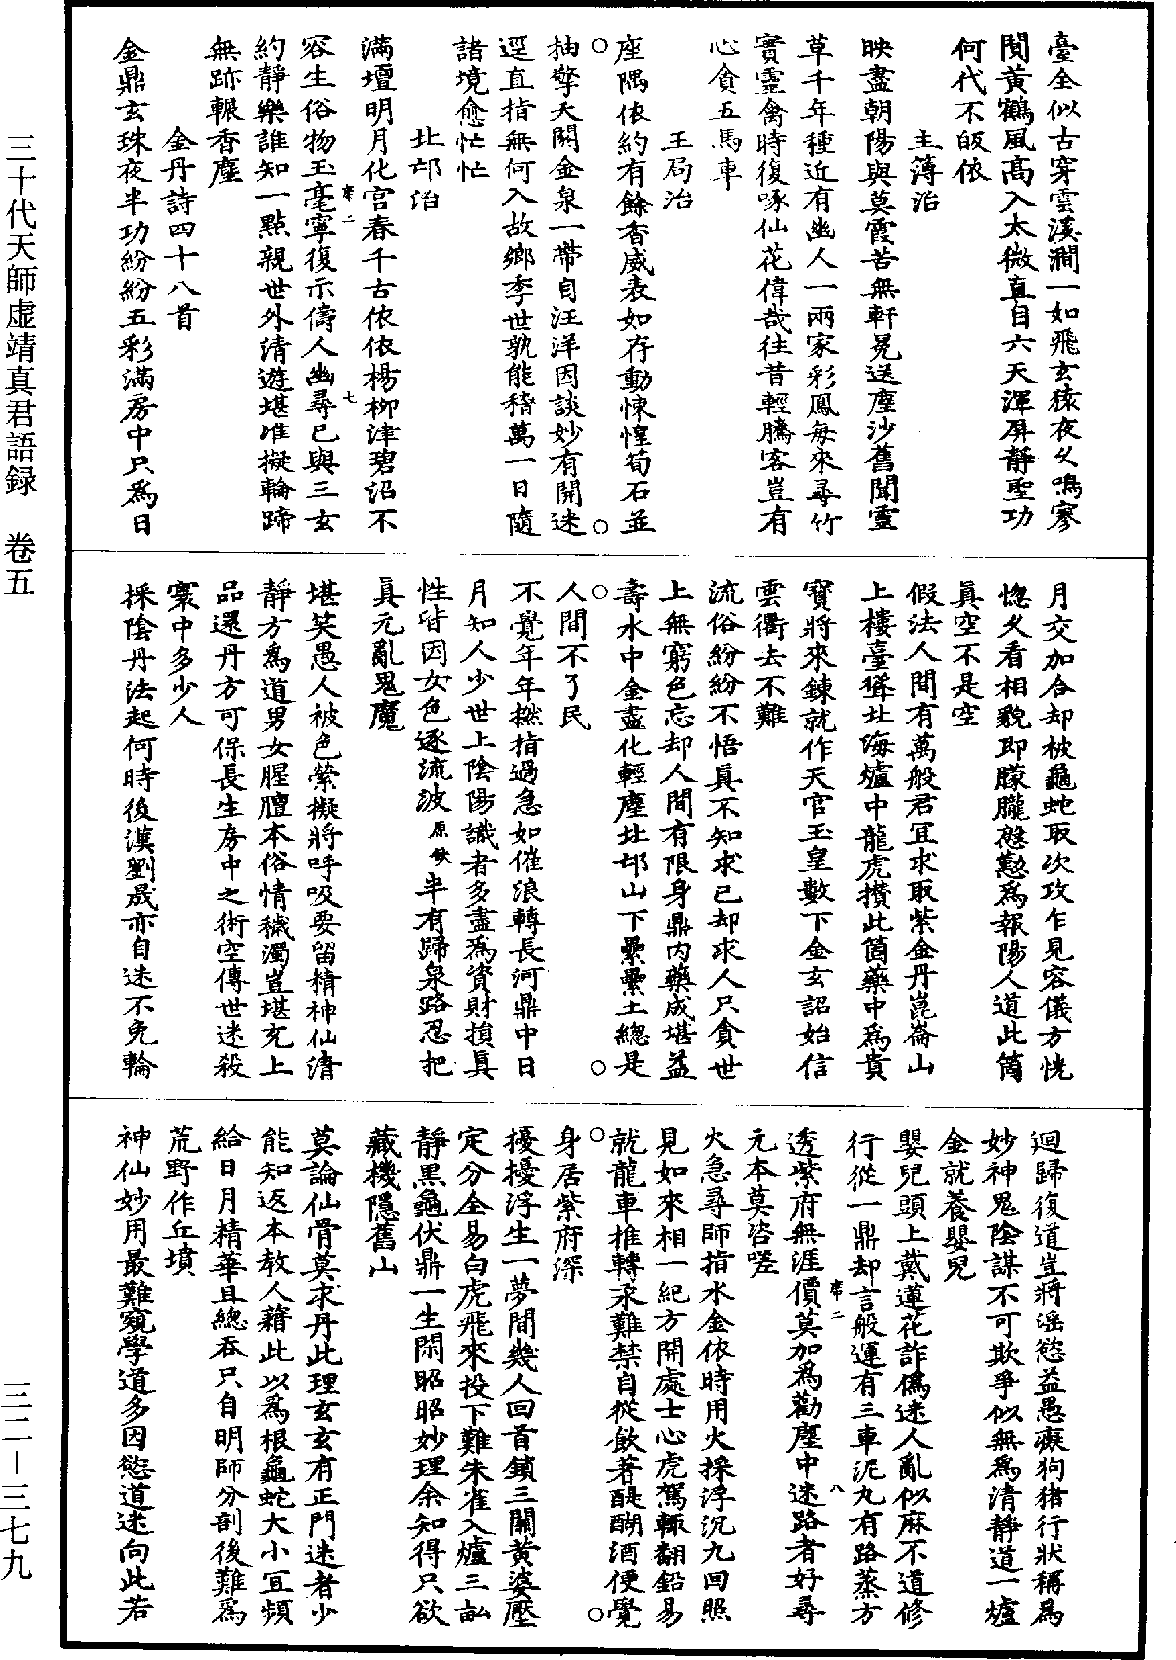 臺全似古穿雲溪澗一如飛玄猿夜久鳴寥
閴黃鶴風高入太微直自六天渾屏靜聖功
何代不皈依
主簿治
映盡朝陽與莫霞苦無軒冕送塵沙舊聞靈
草千年種近有幽人一兩家彩鳳每來尋竹
實靈禽時復啄仙花偉哉往昔輕騰客豈有
心貪五馬車
玉局治
座隅依約有餘香威表如存動悚惶筍石並
抽擎天關金泉一帶自汪洋因談妙有開迷
逕直指無何入故鄉季世孰能稽萬一日隨
諸境愈忙忙
北邙治
滿壇明月化宮春千古依依楊柳津碧沼不
容生俗物玉毫寧復示儔人幽尋已與三玄
約靜樂誰知一點親世外清遊堪准擬輪蹄
無跡輾香塵
金丹詩四十八首
金鼎玄珠夜半功紛紛五彩滿房中只為日
月交加合却被龜蛇取次攻乍見容儀方恍
惚久看相貌即朦朧慇懃為報陽人道此箇
真空不是空
假法人間有萬般君宜求取紫金丹崑崙山
上樓臺聳北海爐中龍虎攢此箇藥中為貴
寶將來鍊就作天官玉皇數下金玄詔始信
雲衢去不難
流俗紛紛不悟真不知求己却求人只貪世
上無窮色忘却人間有限身鼎內藥成堪益
壽水中金盡化輕塵北邙山下纍纍土總是
人間不了民
不覺年年撚指過急如催浪轉長河鼎中日
月知人少世上陰陽識者多盡為資財損真
性皆因女色逐流波原缺半有歸泉路忍把
真元亂鬼魔
堪笑愚人被色縈擬將呼吸要留精神仙清
靜方為道男女腥膻本俗情穢濁豈堪充上
品還丹方可保長生房中之術空傳世迷殺
寰中多少人
採陰丹法起何時後漢劉晟亦自迷不免輪
迴歸復道豈將淫慾益愚癡狗猪行狀稱為
妙神鬼陰謀不可欺爭似無為清靜道一爐
金就養嬰兒
嬰兒頭上戴蓮花詐偽迷人亂似麻不道修
行從一鼎却言般運有三車泥丸有路蒸方
透紫府無涯價莫加為勸塵中迷路者好尋
元本莫咨嗟
火急尋師指水金依時用火採浮沉九回照
見如來相一紀方開處士心虎駕輙翻鉛易
就龍車推轉汞難禁自從飲著醍醐酒便覺
身居紫府深
擾擾浮生一夢間幾人回首鎖三關黃婆壓
定分全易白虎飛來投下難朱雀入爐三畝
靜黑龜伏鼎一生閑昭昭妙理余知得只欲
藏機隱舊山
莫論仙骨莫求丹此理玄玄有正門迷者少
能知返本教人藉此以為根龜蛇大小宜頻
給日月精華且總吞只自明師分剖後難為
荒野作丘墳
神仙妙用最難窺學道多因慾道迷向此若
三十代天師虛靖真君語録　卷五
三二－三七九